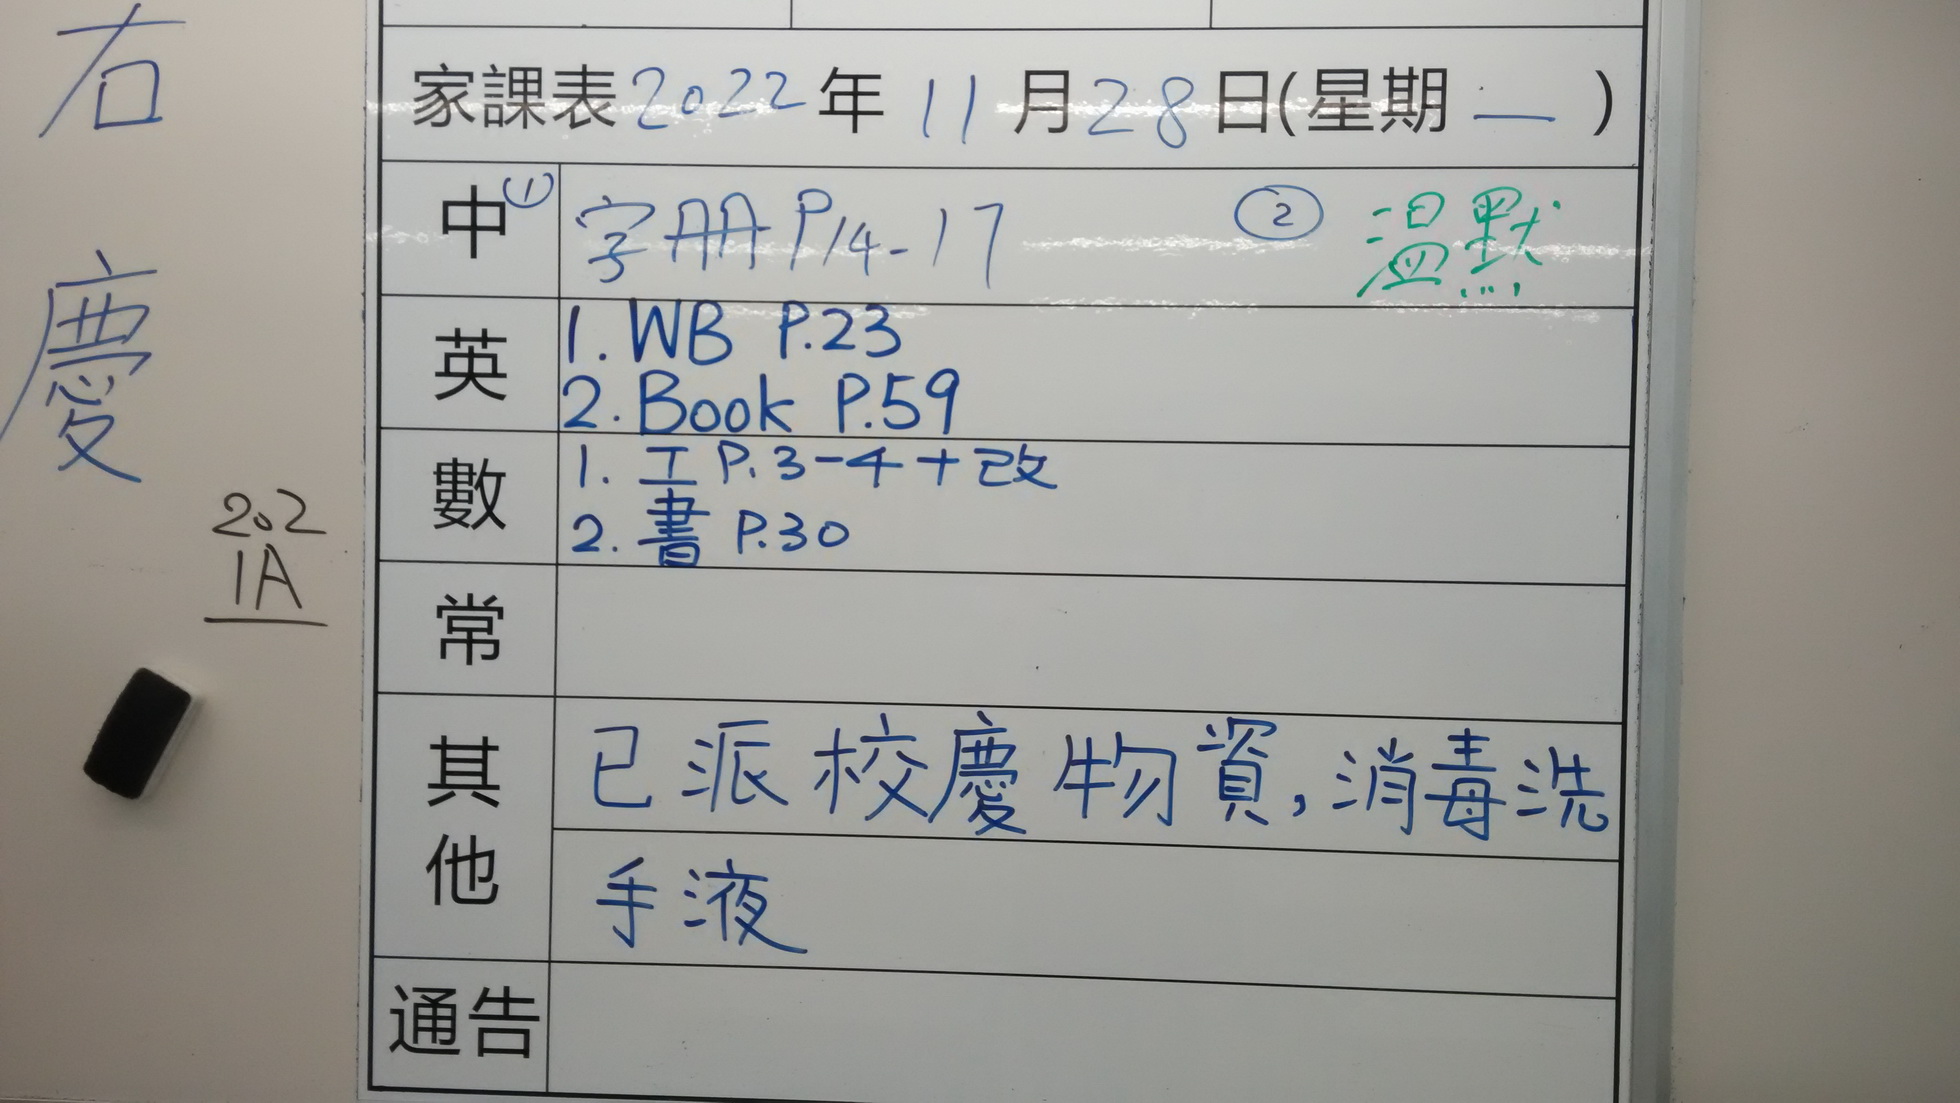 右
慶
202
1A
家課表2022年11月28日(星期一)
中 ① 字册P14-17 ② 溫默
英
1. WB P.23
2. Book P.59
數
1. 工 P.3-4+改
2. 書 P.30
常
其他
已派校慶物資,消毒洗
手液
通告